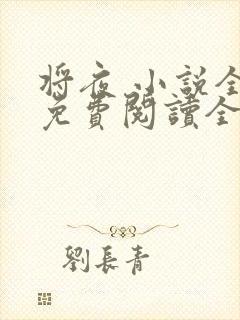 将夜 小說全
免費閱讀全
劉長青